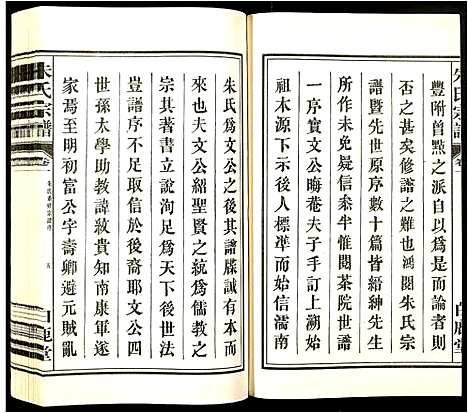 豐附曾點之派自以爲是而論者則
否之甚矣修譜之難也鴻閱朱氏宗
譜暨先世原序數十篇皆縉紳先生
所作未免疑信叅半惟閱茶院世譜
一序實文公晦菴夫子手訂上溯始
祖本源下示後人標準足見始信濡南
朱氏爲文公之後其譜牒誠有本而
來也夫文公紹聖賢之統爲儒教之
宗其著書立說洵足爲天下後世法
豈譜序不足取信於後裔耶文公四
世孫太學助教諱紋貴知南康軍遂
家焉至明初富公字壽卿避元賊亂
朱氏宗譜
卷
朱氏重修宗譜序
五
白鹿堂
朱氏宗譜
卷
白鹿堂